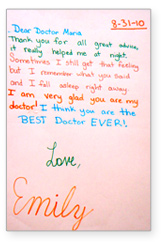 8-31-10
Dear Doctor Maria
Thank you for all great advice,
it really helped me at night.
Sometimes I still get that feeling
but I remember what you said
and I fall asleep right away.
I am very glad you are my
doctor! I think you are the
BEST Doctor EVER!.
Love,
Emily